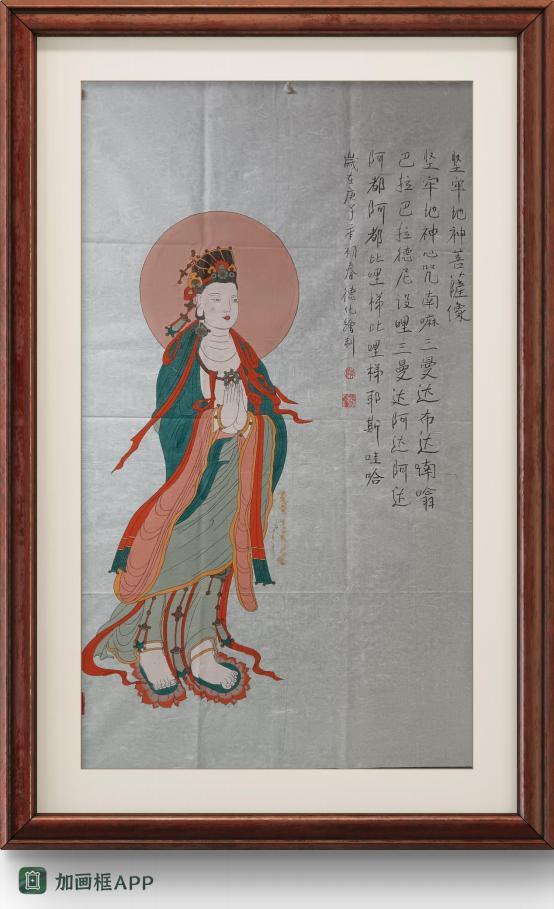 坚牢地神菩薩像
坚牢地神心咒南嘛三曼达布达喃嗡
巴拉巴拉德尼涅哩三曼达阿达阿达
阿都阿都比哩梯比哩梯耶斯哇哈
歲在庚子年初春德化繪製
加画框APP